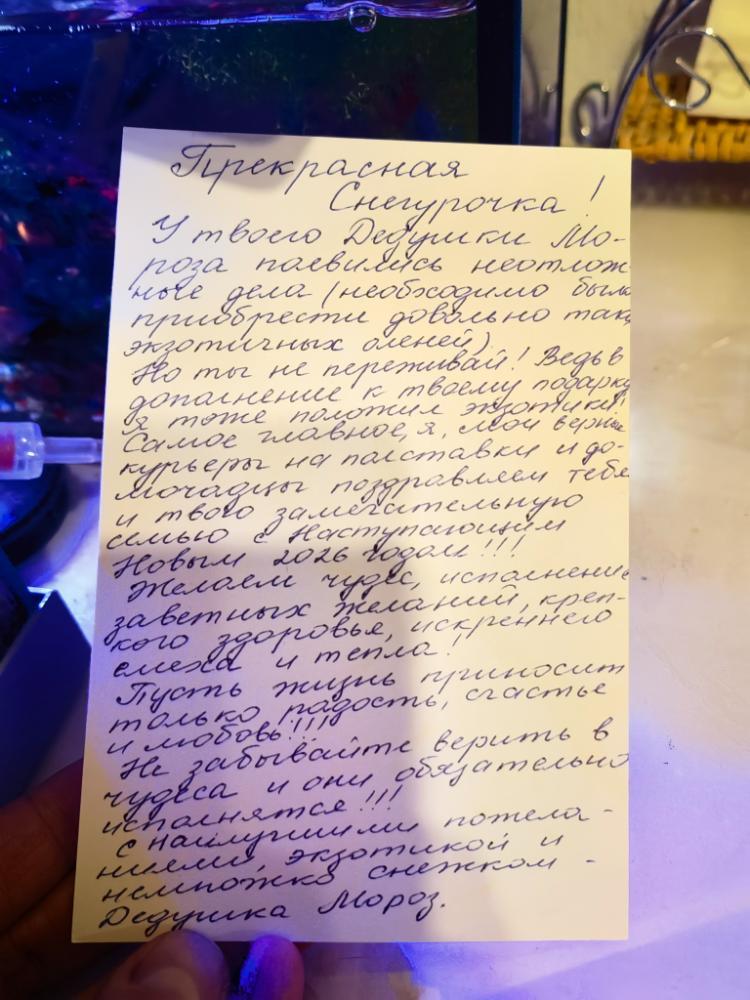 Прекрасная
Снегурочка!
У твоего Дедушки Мо-
роза появились неотлож-
ные дела (необходимо было
приобрести довольно таки
экзотичных оленей).
Но ты не переживай! Ведь в
дополнение к твоему подарку
я тоже положил экзотики!
Самое главное, я, мои верные
курьеры на полставки и до-
мочадцы поздравляем тебя
и твою замечательную
семью с Наступающим
Новым 2026 годом!!!
Желаем чудес, исполнение
заветных желаний, креп-
кого здоровья, искреннего
смеха и тепла!
Пусть жизнь приносит
только радость, счастье
и любовь!!!
Не забывайте верить в
чудеса и они обязательно
исполнятся!!!
С наилучшими пожела-
ниями, экзотикой и
немножко снежком -
Дедушка Мороз.